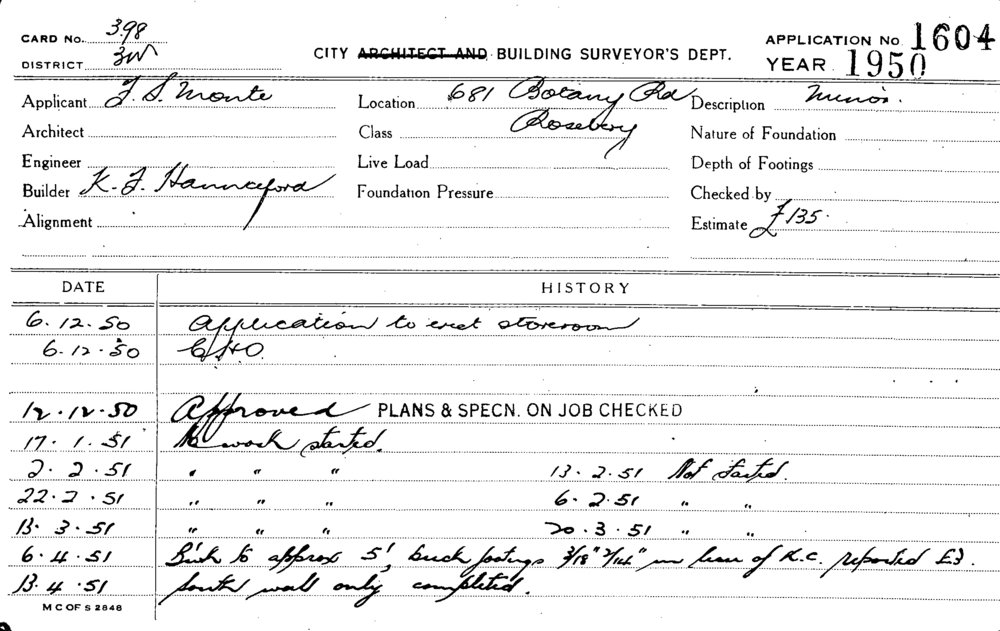 CARD No. 398
DISTRICT 3W
CITY ARCHITECT AND BUILDING SURVEYOR'S DEPT.
APPLICATION No 1604
YEAR 1950
Applicant F. S. Monte
Location 681 Botany Rd
Description Minor.
Architect
Class Rosebery
Nature of Foundation
Engineer
Live Load
Depth of Footings
Builder K. F. Hannaford
Foundation Pressure
Checked by
Alignment
Estimate £135.
DATE HISTORY
6.12.50 Application to erect storeroom
6.12.50 CHO.
12.12.50 Approved PLANS & SPECN. ON JOB CHECKED
17.1.51 No work started.
2.2.51 " " " 13.2.51 Not started.
22.2.51 " " " 6.2.51 " "
13.3.51 " " " 20.3.51 " "
6.4.51 Brick to approx 5', brick footings 3/18" 2/14" in lieu of R.C. reported E3.
13.4.51 South wall only completed.
M C OF S 2848